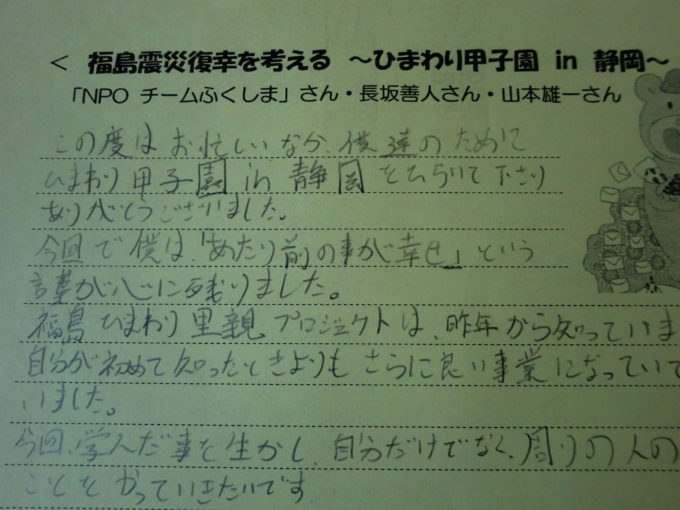 < 福島震災復幸を考える ～ひまわり甲子園 in 静岡～
「NPO チームふくしま」さん・長坂善人さん・山本雄一さん
この度はお忙しいなか、僕達のために
ひまわり甲子園 in 静岡をひらいて下さり
ありがとうございました。
今回で僕は、「あたり前の事が幸せ」という
言葉が心に残りました。
福島ひまわり里親プロジェクトは、昨年から知っていま
自分が初めて知ったときよりもさらに良い事業になっていて
いました。
今回、学んだ事を生かし、自分だけでなく、周りの人の
ことを かっていきたいです